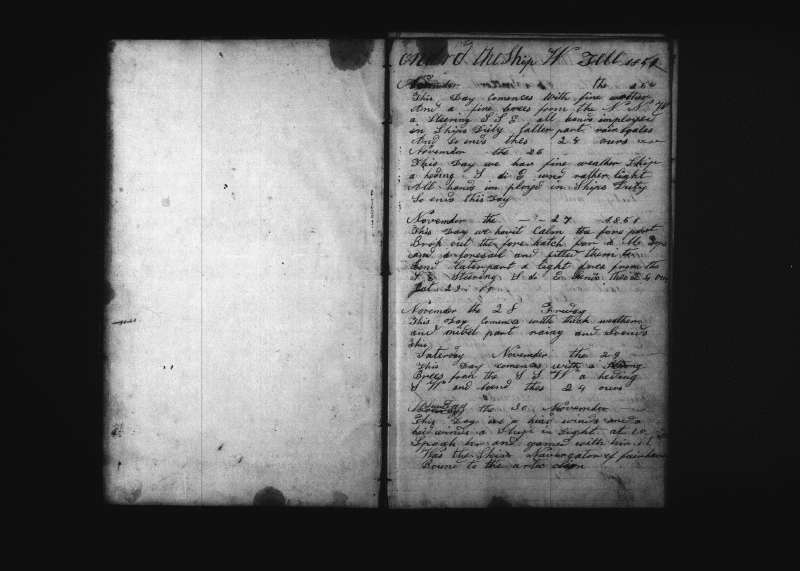 onbord the Ship W Tell 1851
November the
This Day comences with fine weather
and a fine brees from the N N W
a Steering S S E all hands imployed
in Ships Duty latter part
And So ends thes 24 ours
November the 26
This Day we hav fine weather Ship
a heding S wind rather light
All hands im ployed in Ships Duty
So ends this Day
November the - - 27 1851
This Day we hav it Calm the fore part
Brok out the fore hatch for a
and a foresail and fitted them to
bend laterpart a light brees from the
S E Steering S E ends thes 24 our
Lat 29
November the 28 Friday
This Day comences with thick weather
and midel part rainy and So ends
this
Saterday November the 29
this Day comences with a Strong
Brees from the S S W a heding
S W and So end thes 24 ours
Sunday the 30 November
This Day we a head winds and a
head winds a Ship in Sight at 10
Spoak her and gamed with him it
Was the Ship Navergator of fairhaven
Bound to the artic